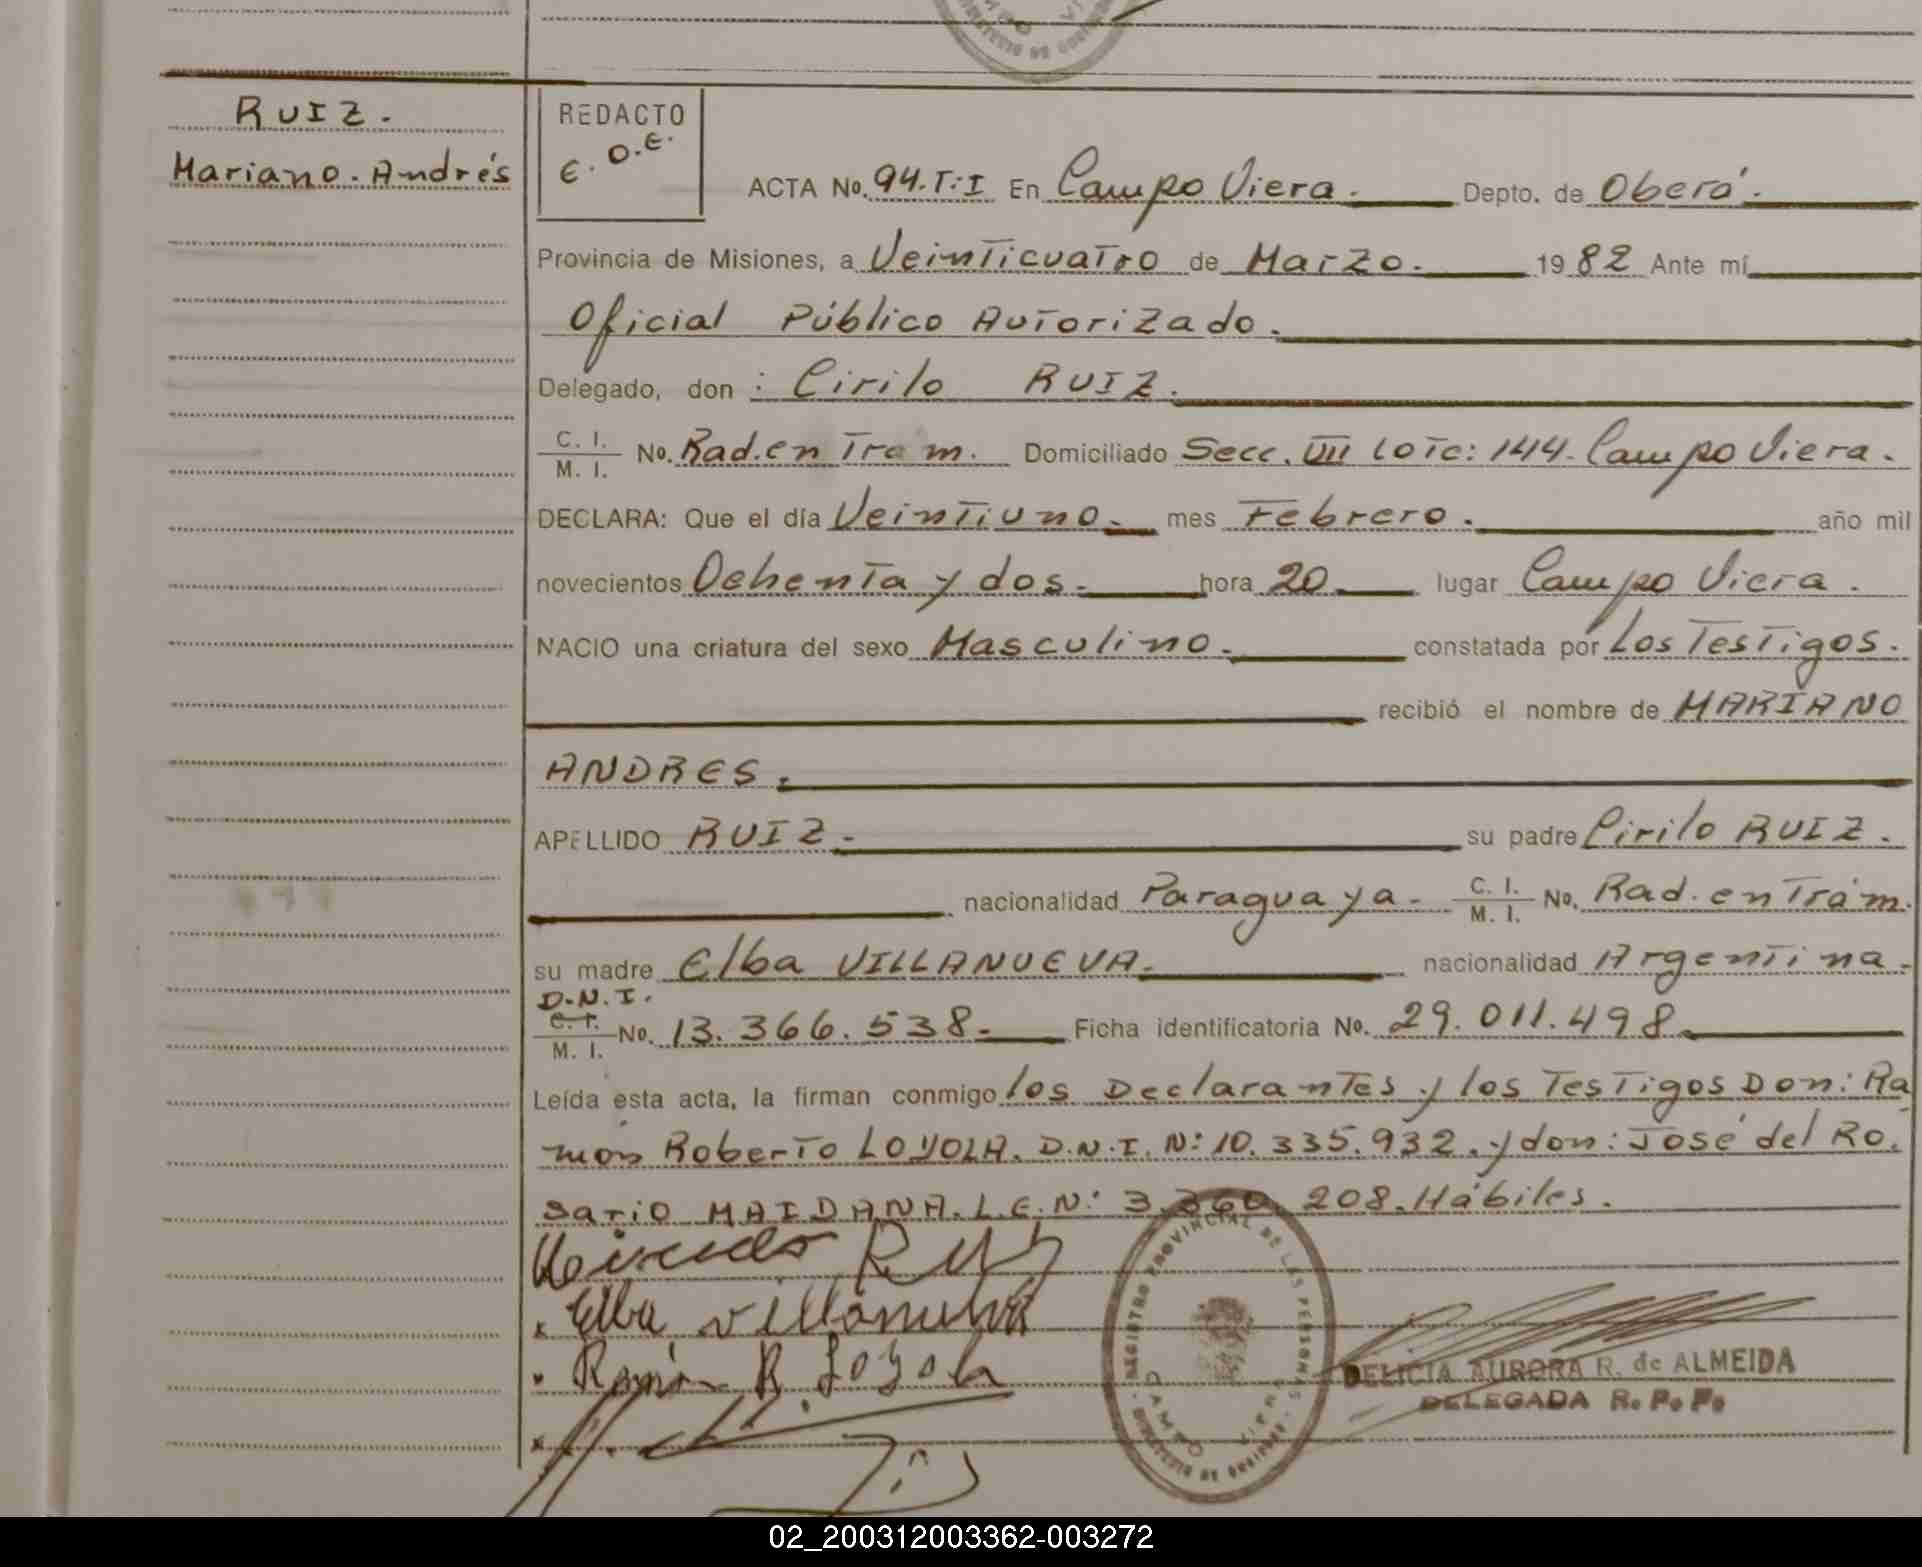 RUIZ.
Mariano. Andrés
REDACTO
E. O.E.
ACTA No. 94.T:I En Campo Viera. Depto. de Oberá.
Provincia de Misiones, a Veinticuatro de Marzo. 1982 Ante mí
Oficial Público Autorizado.
Delegado, don : Cirilo RUIZ.
C. I.
M. I. No. Rad. en Tram. Domiciliado Secc. VIII Lote: 144. Campo Viera.
DECLARA: Que el día Veintiuno. mes Febrero. año mil
novecientos Ochenta y dos. hora 20 lugar Campo Viera.
NACIO una criatura del sexo Masculino. constatada por Los Testigos.
recibió el nombre de MARIANO
ANDRES.
APELLIDO RUIZ. su padre Cirilo RUIZ.
nacionalidad Paraguaya. C. I. M. I. No. Rad. en Trám.
su madre Elba VILLANUEVA. nacionalidad Argentina.
D.N.I.
C. I.
M. I. No. 13.366.538. Ficha identificatoria No. 29.011.498
Leída esta acta, la firman conmigo los Declarantes y los Testigos Don: Ra
món Roberto LOYOLA. D.N.I. N: 10.335.932. y don: José del Ro.
sario MAIDANA. L.E.N: 3.360.208. Hábiles.
Ruiz
x Elba Villanueva
Ramón R. Loyola
REGISTRO PROVINCIAL DE LAS PERSONAS
CAMPO VIERA
DELICIA AURORA R. de ALMEIDA
DELEGADA R. P. P.
02_200312003362-003272